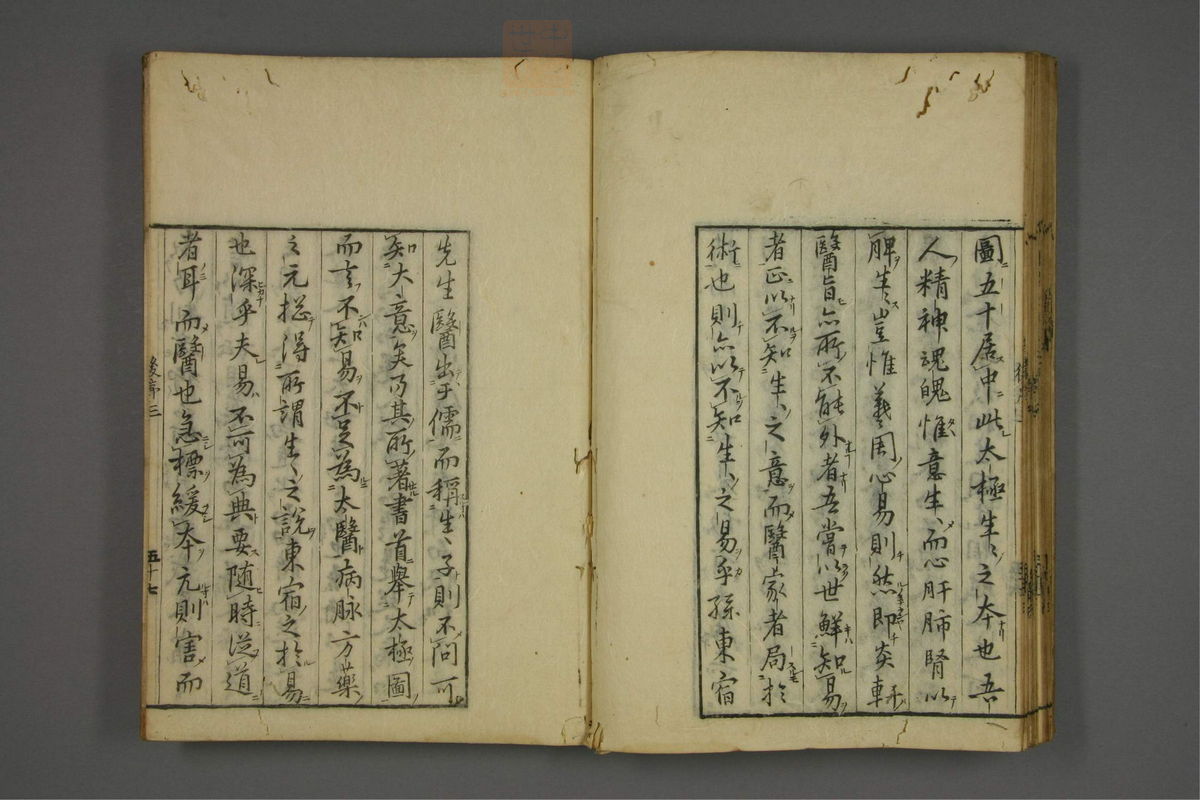 圖五十居中此太極生〻之本也吾
人精神魂魄惟意生〻而心肝肺腎以
脾生〻豈惟羲周心易則然即炎軒
醫旨亦所不能外者吾嘗以世鮮知易
者正以不知生〻之意而醫家者局於
術也則亦以不知生〻之易乎孫東宿
先生醫出乎儒而稱生〻子則不問可
知大意矣乃其所著書首舉太極圖
而言不知易不足為太醫病脉方藥
之元揔淂所謂生〻之説東宿之於易
也深乎夫易不可為典要随時从道
者耳而醫也急標緩本亢則害而
後序三
五十七